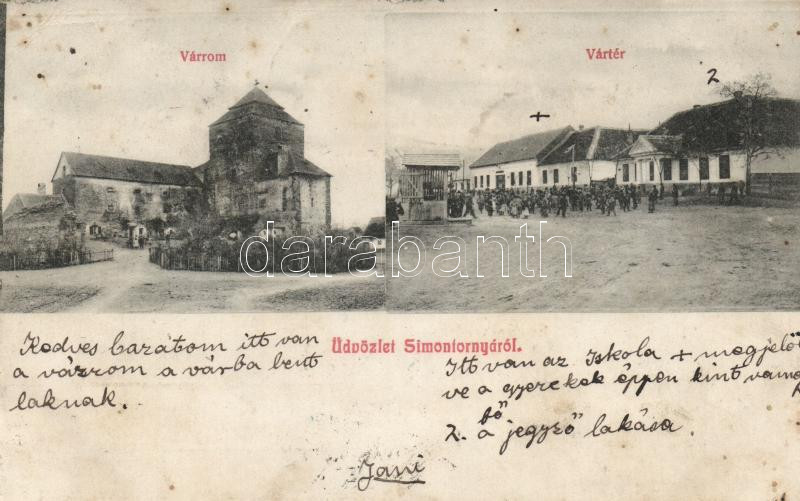 Várrom
Vártér
2
+
darabanth
Üdvözlet Simontornyáról.
Kedves barátom itt van
a várrom a várba bent
laknak.
Itt van az Iskola + megjelöl
ve a gyerekek éppen kint vannak
bő
2. a jegyző lakása.
Jani